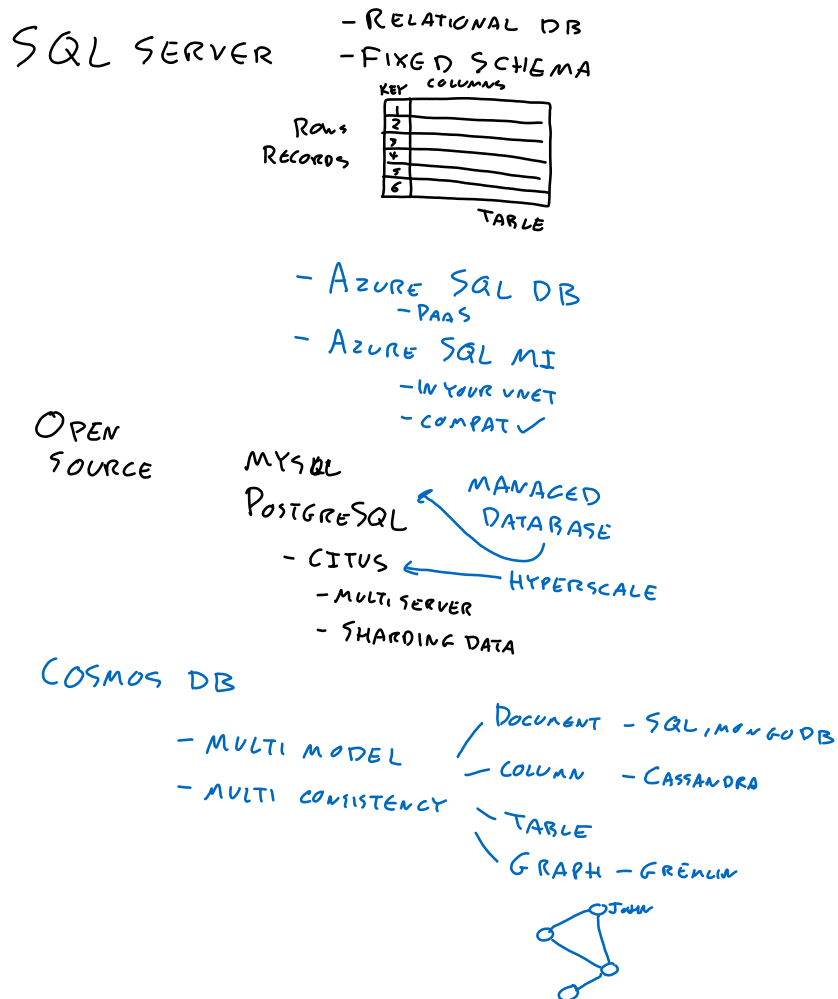 SQL SERVER
- RELATIONAL DB
- FIXED SCHEMA
KEY COLUMNS
1
2
3
4
5
6
ROWS
RECORDS
TABLE
- AZURE SQL DB
- PAAS
- AZURE SQL MI
- IN YOUR VNET
- COMPAT ✓
OPEN
SOURCE
MYSQL
POSTGRESQL
MANAGED
DATABASE
- CITUS
HYPERSCALE
- MULTI SERVER
- SHARDING DATA
COSMOS DB
- MULTI MODEL
- MULTI CONSISTENCY
DOCUMENT - SQL, MONGODB
COLUMN - CASSANDRA
TABLE
GRAPH - GREMLIN
JOHN